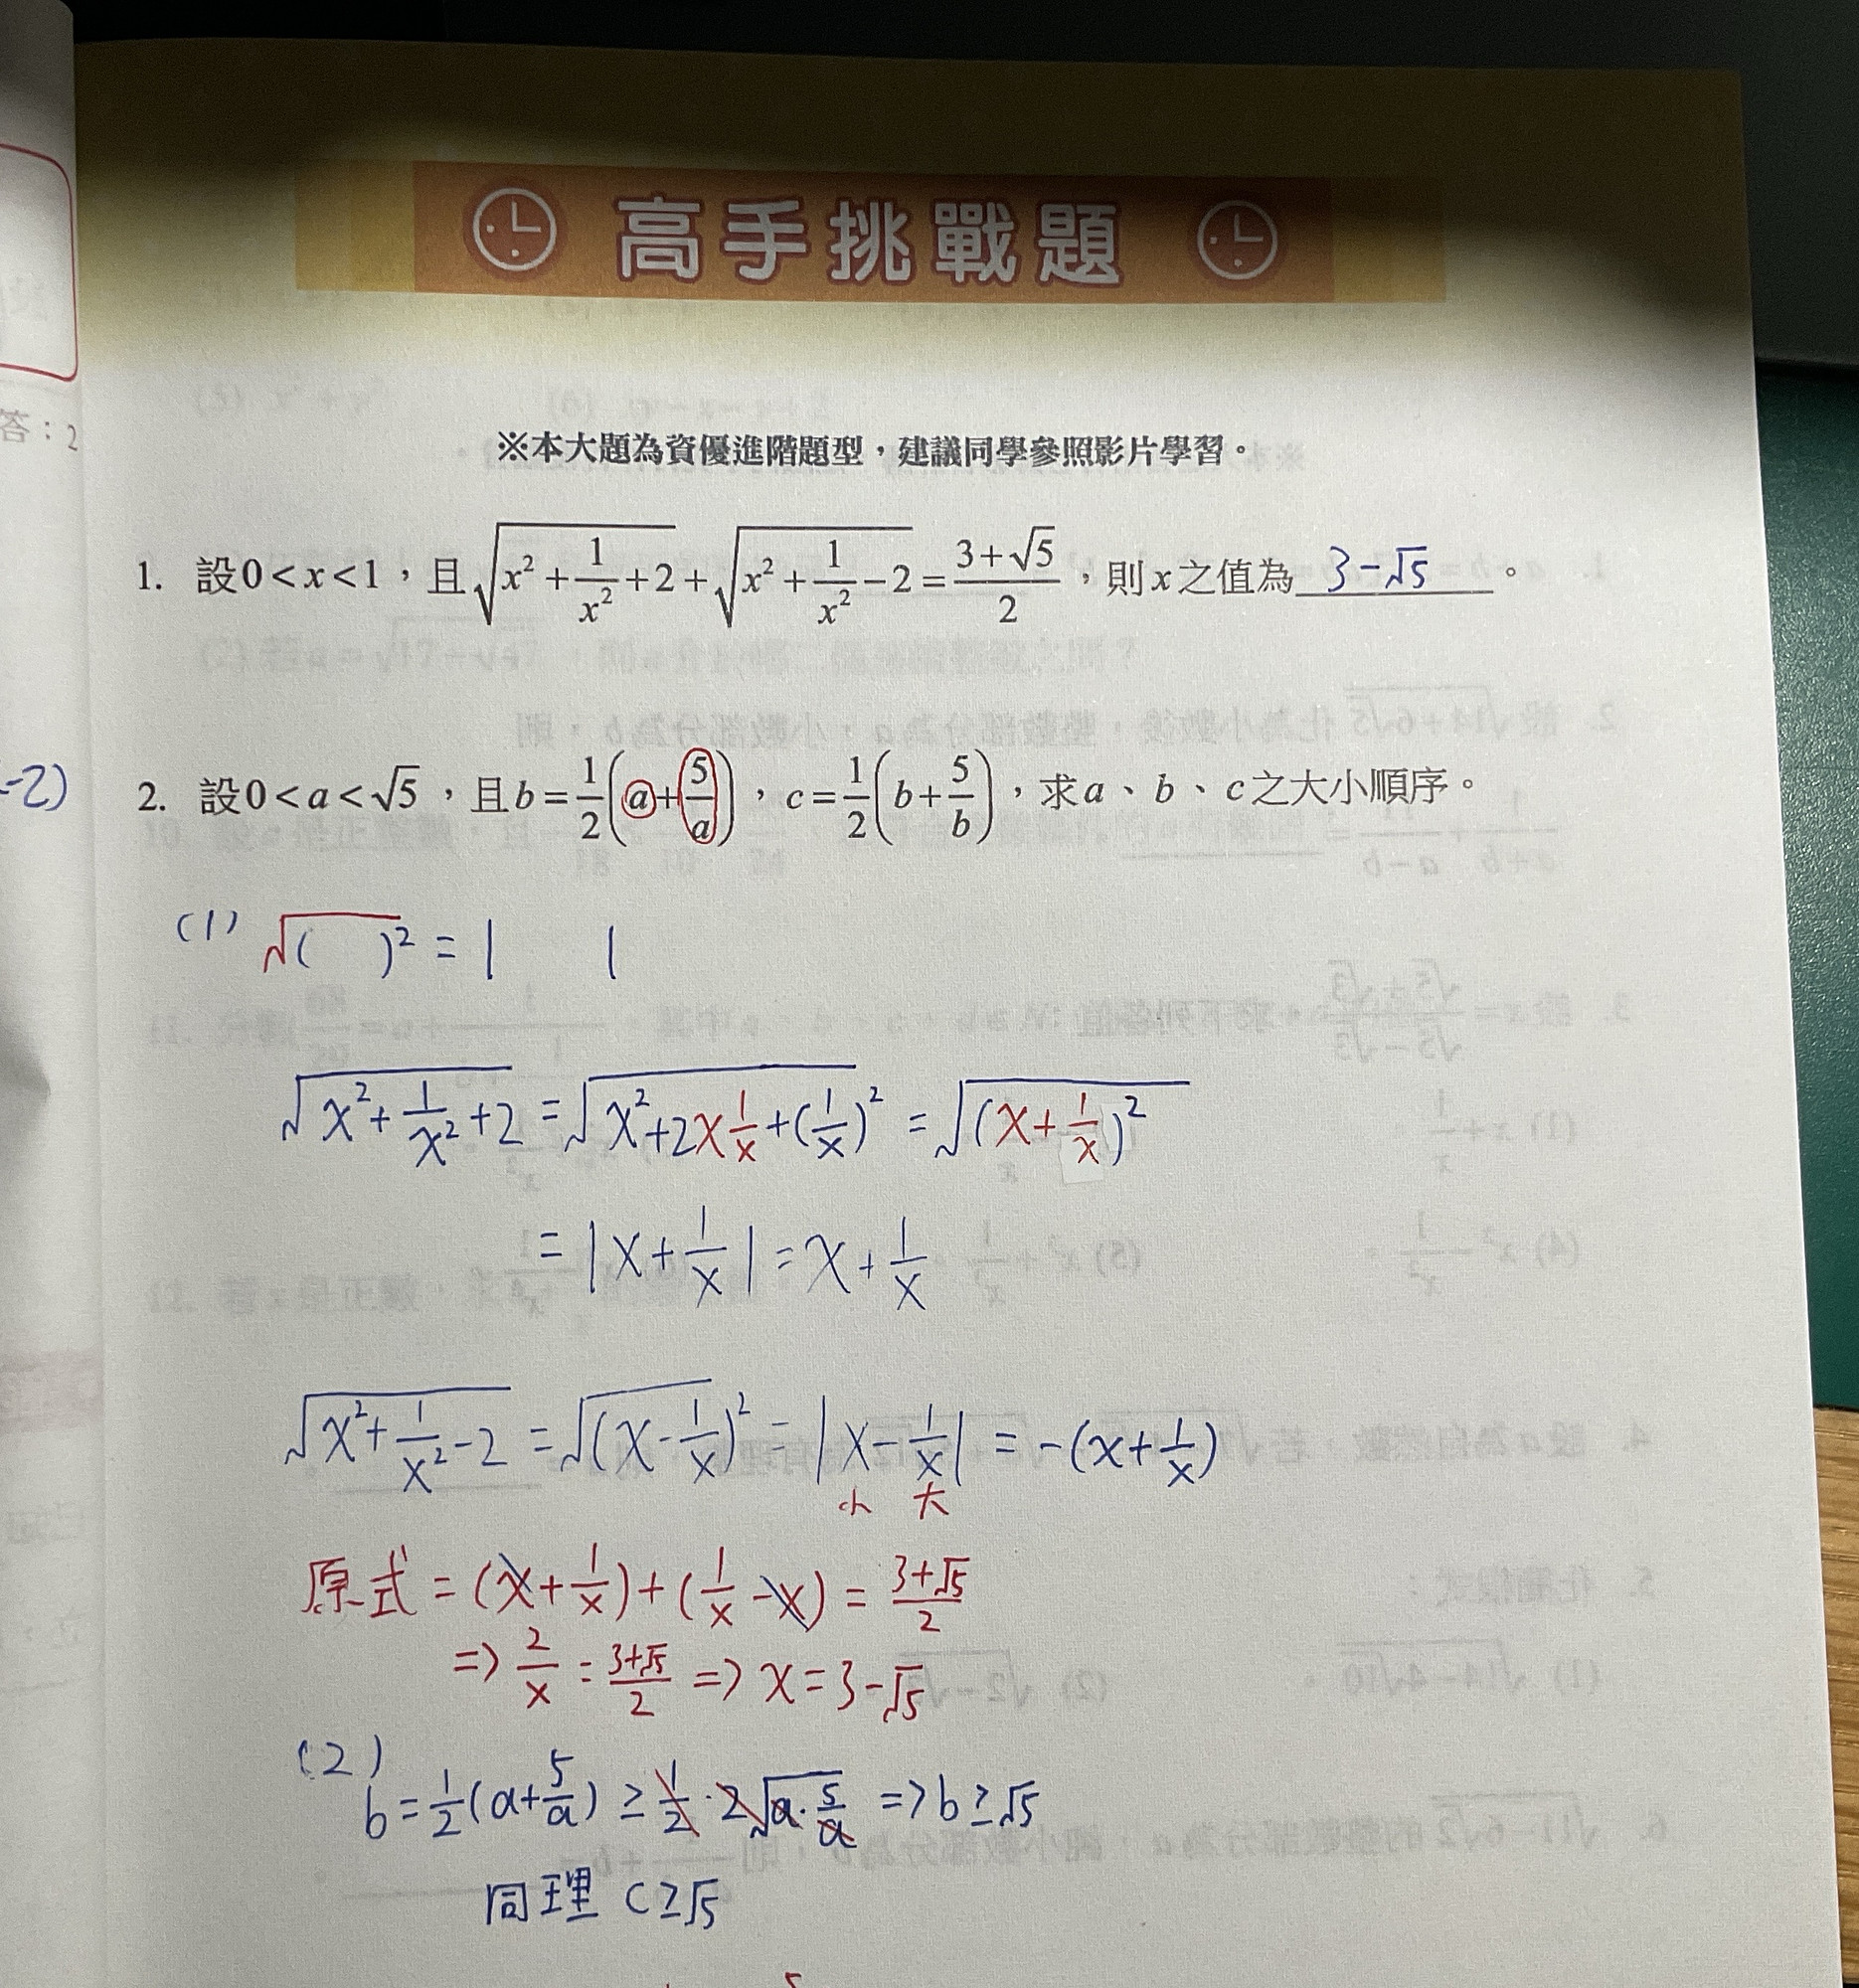 高手挑戰題
答：2
※本大題為資優進階題型，建議同學參照影片學習。
1. 設0<x<1，且√(x²+1/x²+2)+√(x²+1/x²−2)=(3+√5)/2，則x之值為 3-√5 。
-2)
2. 設0<a<√5，且b=1/2(a+5/a)，c=1/2(b+5/b)，求a、b、c之大小順序。
(1) √( )² = | |
√(x²+1/x²+2) = √(x²+2x1/x+(1/x)²) = √((x+1/x)²)
= |x+1/x| = x+1/x
√(x²+1/x²-2) = √((x-1/x)²) = |x-1/x| = -(x+1/x)
小 大
原式 = (x+1/x)+(1/x-x) = (3+√5)/2
=> 2/x = (3+√5)/2 => x=3-√5
(2)
b=1/2(a+5/a) ≥ 1/2·2√(a·5/a) => b≥√5
同理 c≥√5